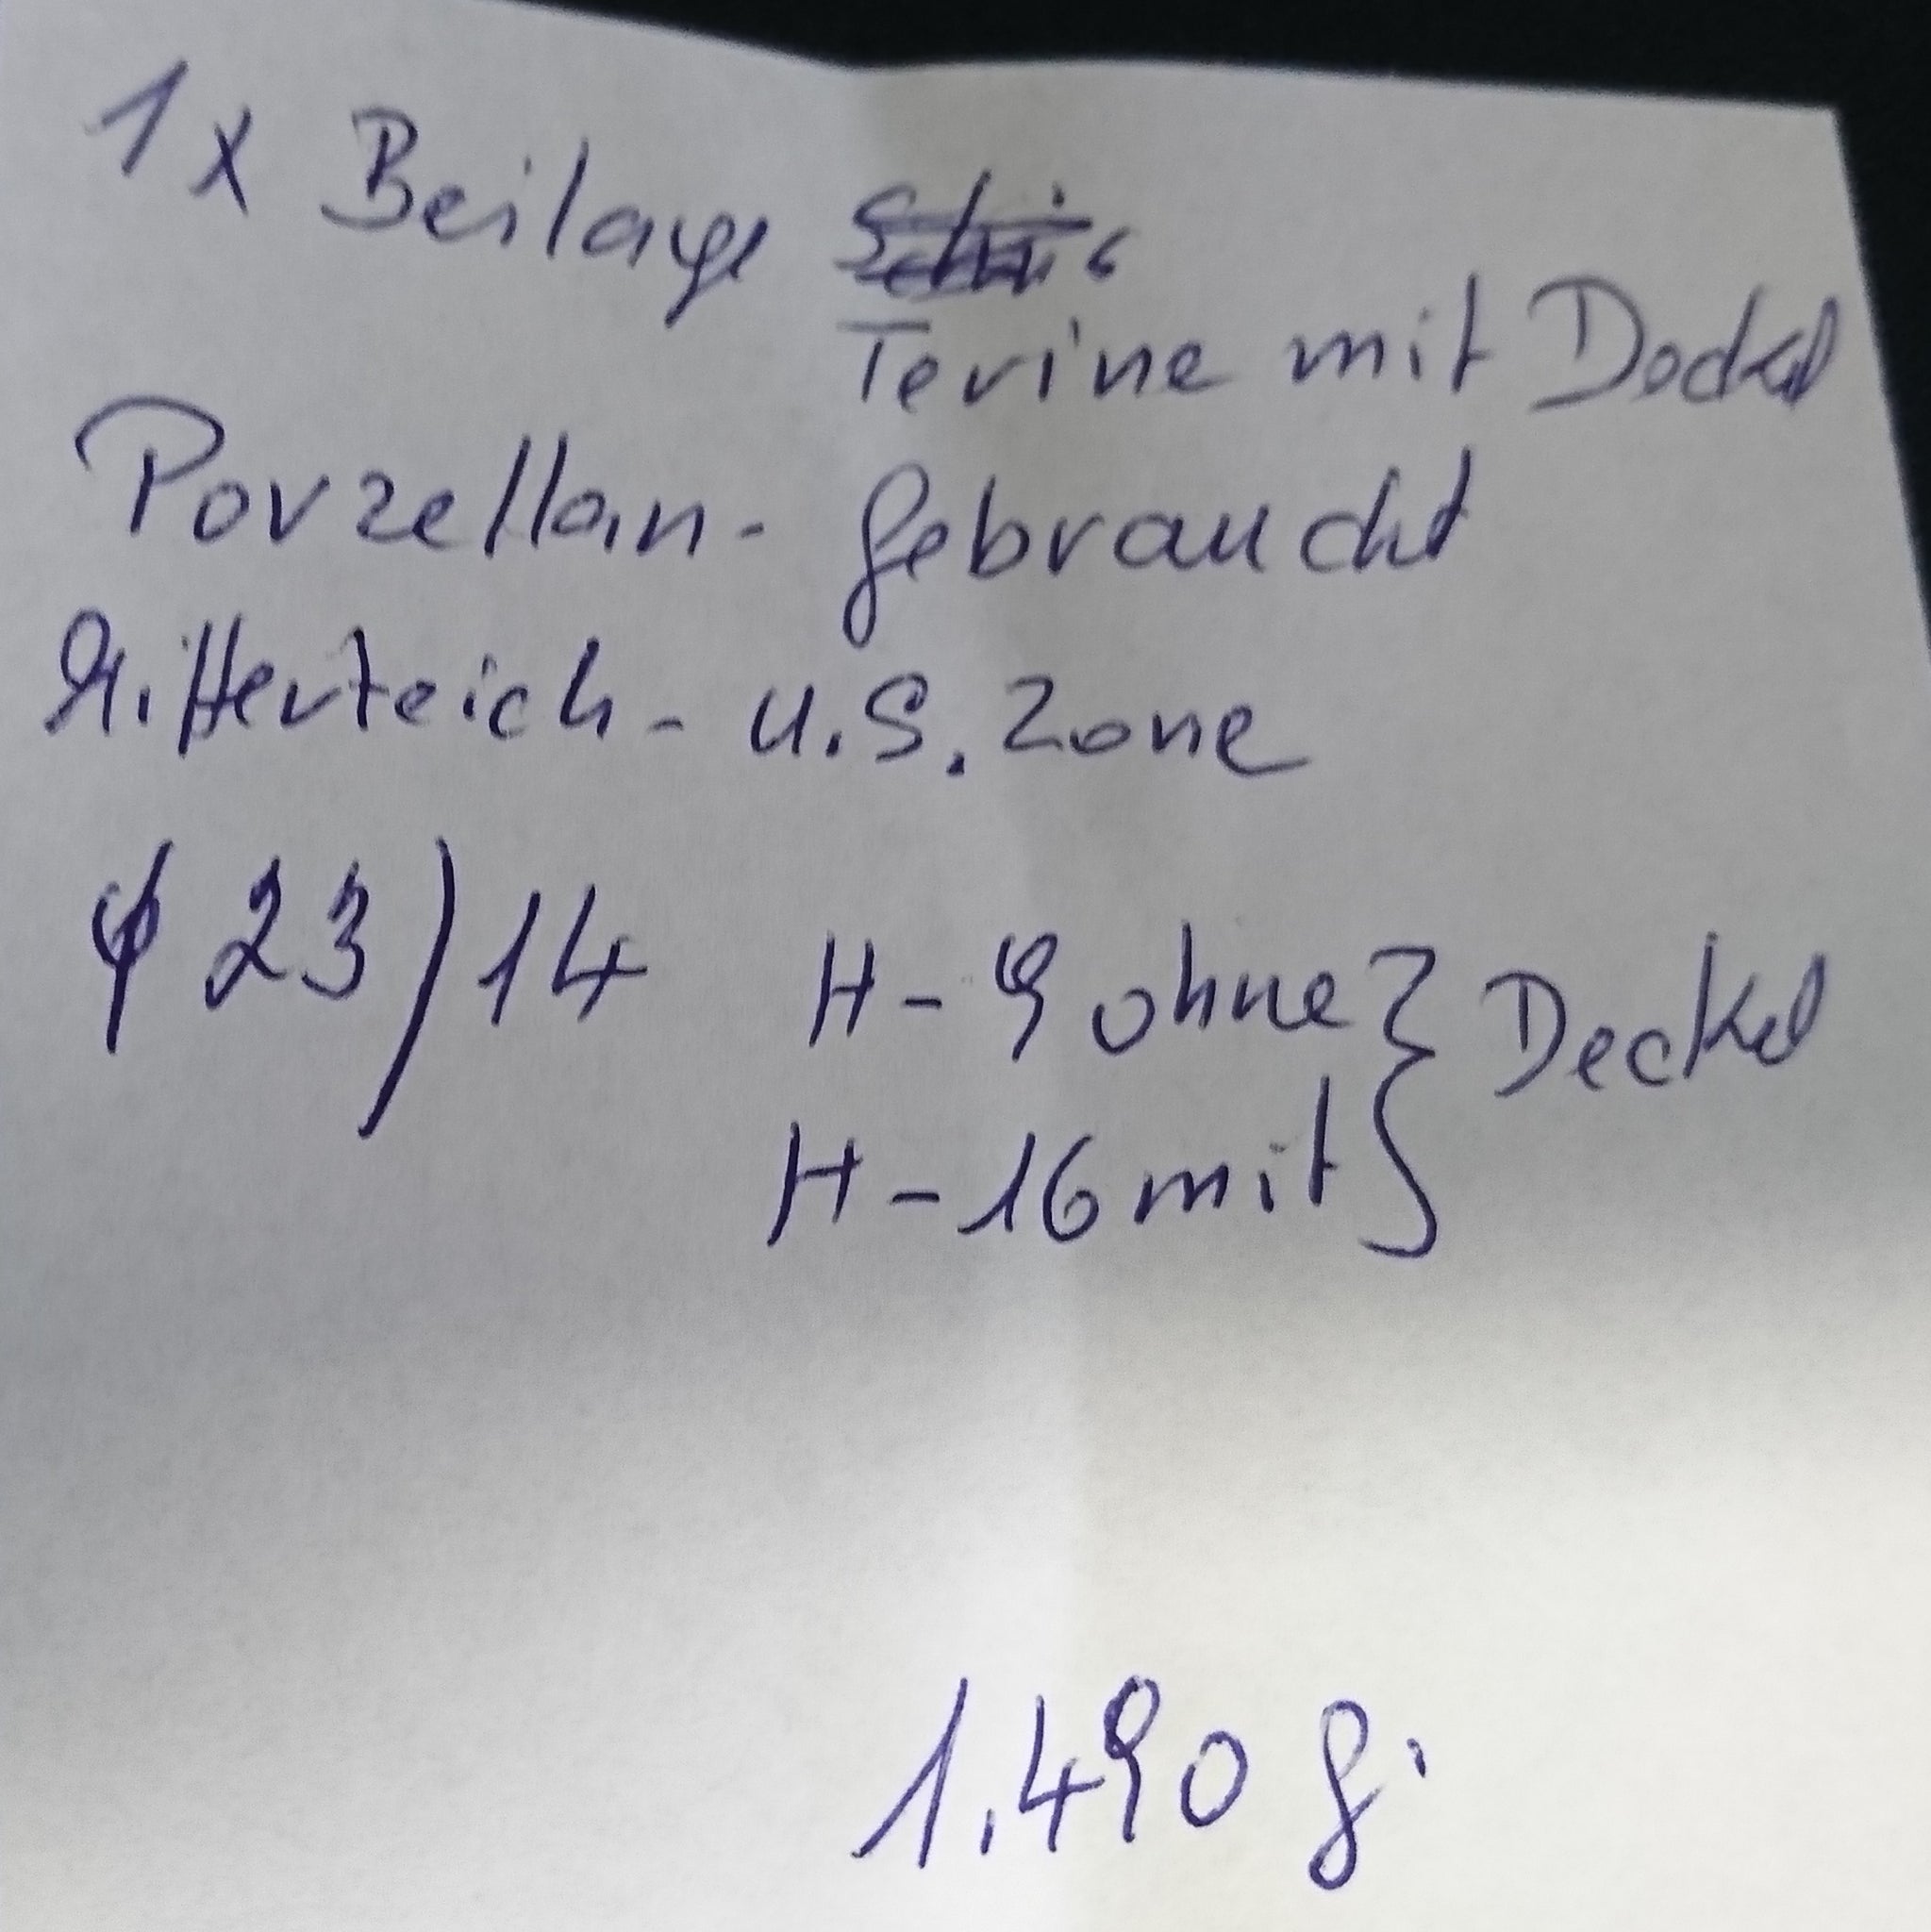 1 x Beilage
Terine mit Deckel
Porzellan - gebraucht
Mitterteich - U.S. Zone
φ 23/14 H - 9 ohne } Deckel
H - 16 mit
1.490 g.